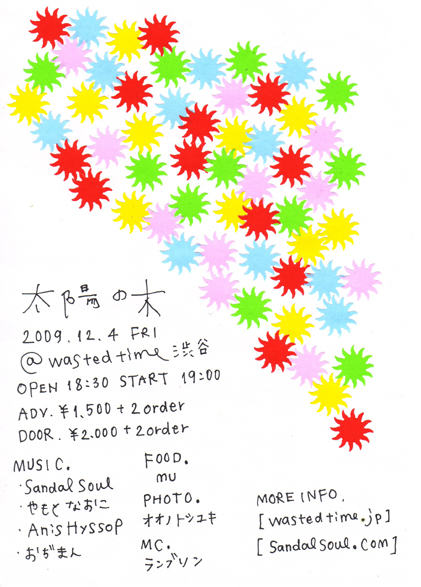 太陽の木
2009.12.4 FRI
@wastedtime 渋谷
OPEN 18:30 START 19:00
ADV. ¥1,500+2order
DOOR. ¥2.000+2order
MUSIC.
・Sandal Soul
・やもとなおこ
・Anis Hyssop
・おぢまん
FOOD.
mu
PHOTO.
オオノトシユキ
MC.
ランブソン
MORE INFO.
[wastedtime.jp]
[SandalSoul.com]